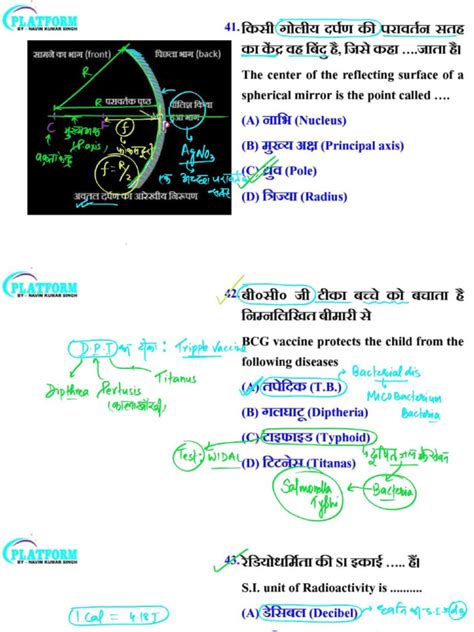 PLATFORM
BY - NAVIN KUMAR SINGH
41. किसी गोलीय दर्पण की परावर्तन सतह
का केंद्र वह बिंदु है, जिसे कहा ....जाता है।
The center of the reflecting surface of a
spherical mirror is the point called ....
(A) नाभि (Nucleus)
(B) मुख्य अक्ष (Principal axis)
(C) ध्रुव (Pole)
(D) त्रिज्या (Radius)
सामने का भाग (front)
पिछला भाग (back)
R
R
परावर्तक पृष्ठ
पॉलिश किया
हुआ भाग
C
F
f
axis
AgNO3
f = R/2
अवतल दर्पण का आरेखीय निरूपण
PLATFORM
BY - NAVIN KUMAR SINGH
42. बी०सी० जी टीका बच्चे को बचाता है
निम्नलिखित बीमारी से
BCG vaccine protects the child from the
following diseases
(A) तपेदिक (T.B.)
(B) गलघाटू (Diptheria)
(C) टाइफाइड (Typhoid)
(D) टिटनेस (Titanas)
D.P.T का टीका: Tripple vaccine
Titanus
Dipthrea
Pertusis
Bacterial dis
MicoBacterium
Bacteria
Test: WIDAL
Bacteria
Salmonella
Typhi
PLATFORM
BY - NAVIN KUMAR SINGH
43. रेडियोधर्मिता की SI इकाई ..... हैं।
S.I. unit of Radioactivity is ..........
(A) डेसिबल (Decibel)
1 Cal = 4.18J